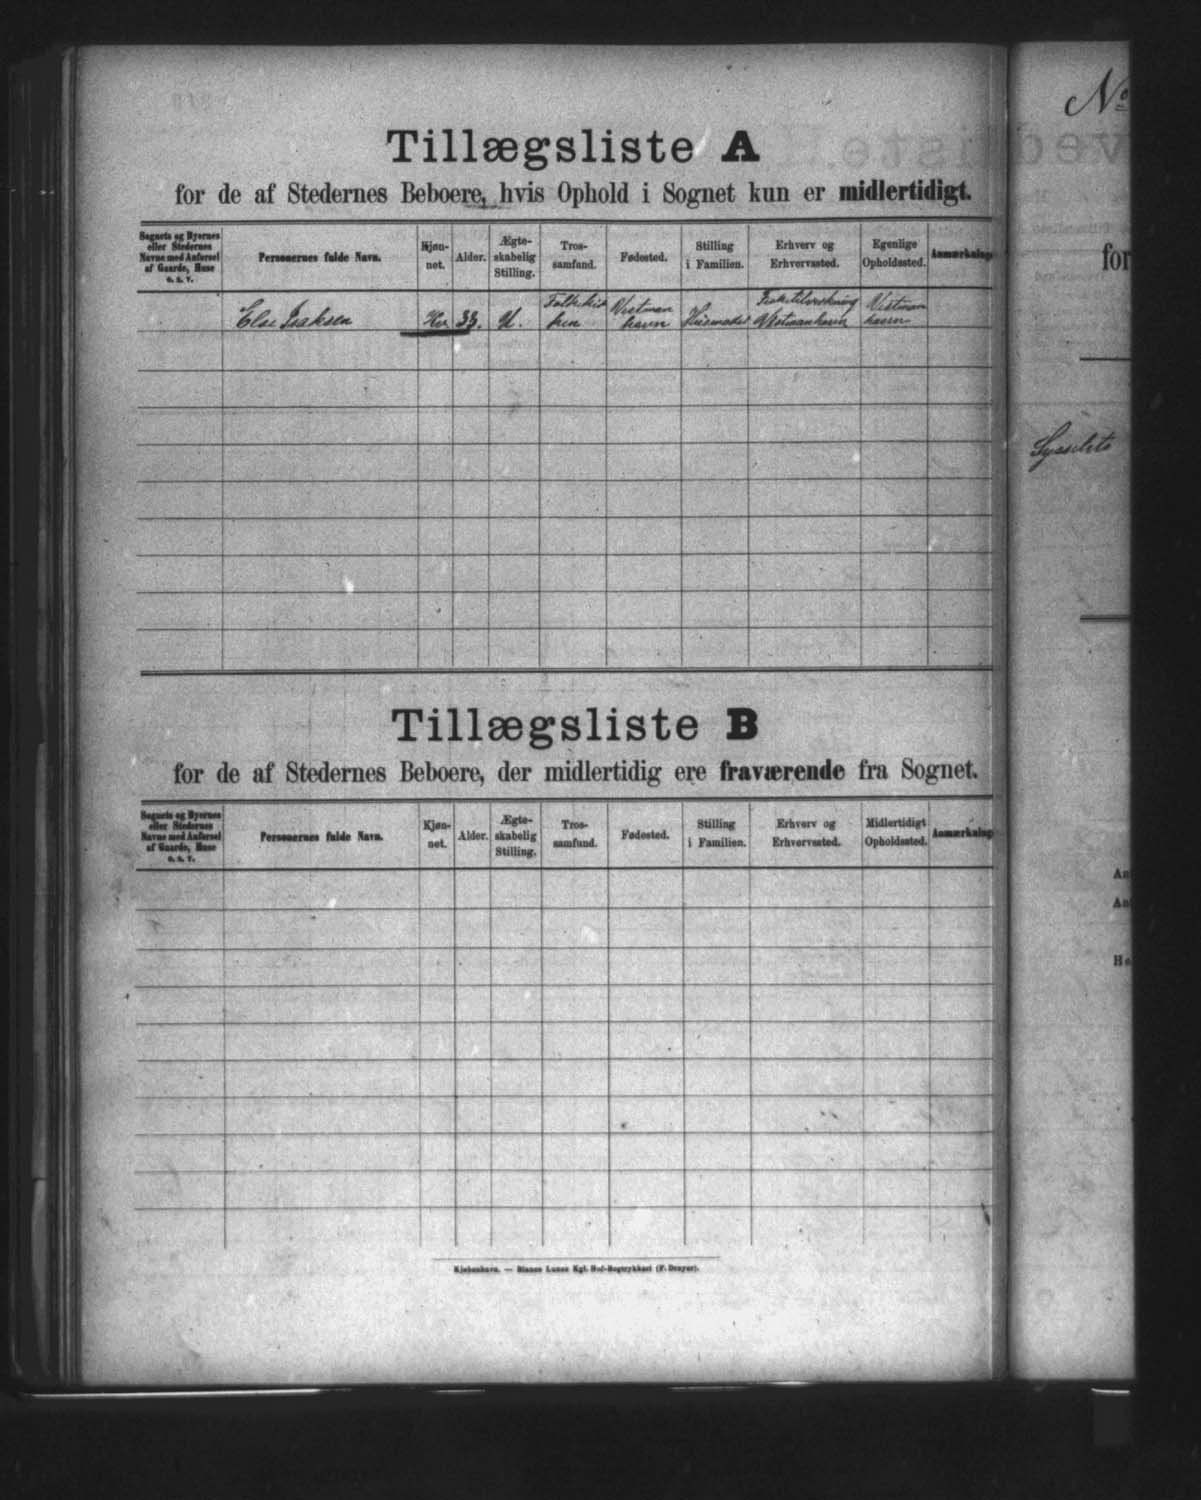 Tillægsliste A
for de af Stedernes Beboere, hvis Ophold i Sognet kun er midlertidigt.
Sognets og Byernes eller Stedernes Navne med Anførsel af Gaarde, Huse o. s. v.
Personernes fulde Navn.
Kjøn-
net.
Alder.
Ægte-
skabelig
Stilling.
Tros-
samfund.
Fødested.
Stilling
i Familien.
Erhverv og
Erhvervssted.
Egenlige
Opholdssted.
Anmærkning
Else Isaksen
Kv.
33.
U.
Folkekir
ken
Vestman
havn
Husmoder
Fisketilvirkning
Vestmanhavn
Vestman
havn
Tillægsliste B
for de af Stedernes Beboere, der midlertidig ere fraværende fra Sognet.
Sognets og Byernes
eller Stedernes
Navne med Anførsel
af Gaarde, Huse
o. s. v.
Personernes fulde Navn.
Kjøn-
net.
Alder.
Ægte-
skabelig
Stilling.
Tros-
samfund.
Fødested.
Stilling
i Familien.
Erhverv og
Erhvervssted.
Midlertidigt
Opholdssted.
Anmærkning
Kjøbenhavn. — Bianco Lunos Kgl. Hof-Bogtrykkeri (F. Dreyer).
No
for
An
An